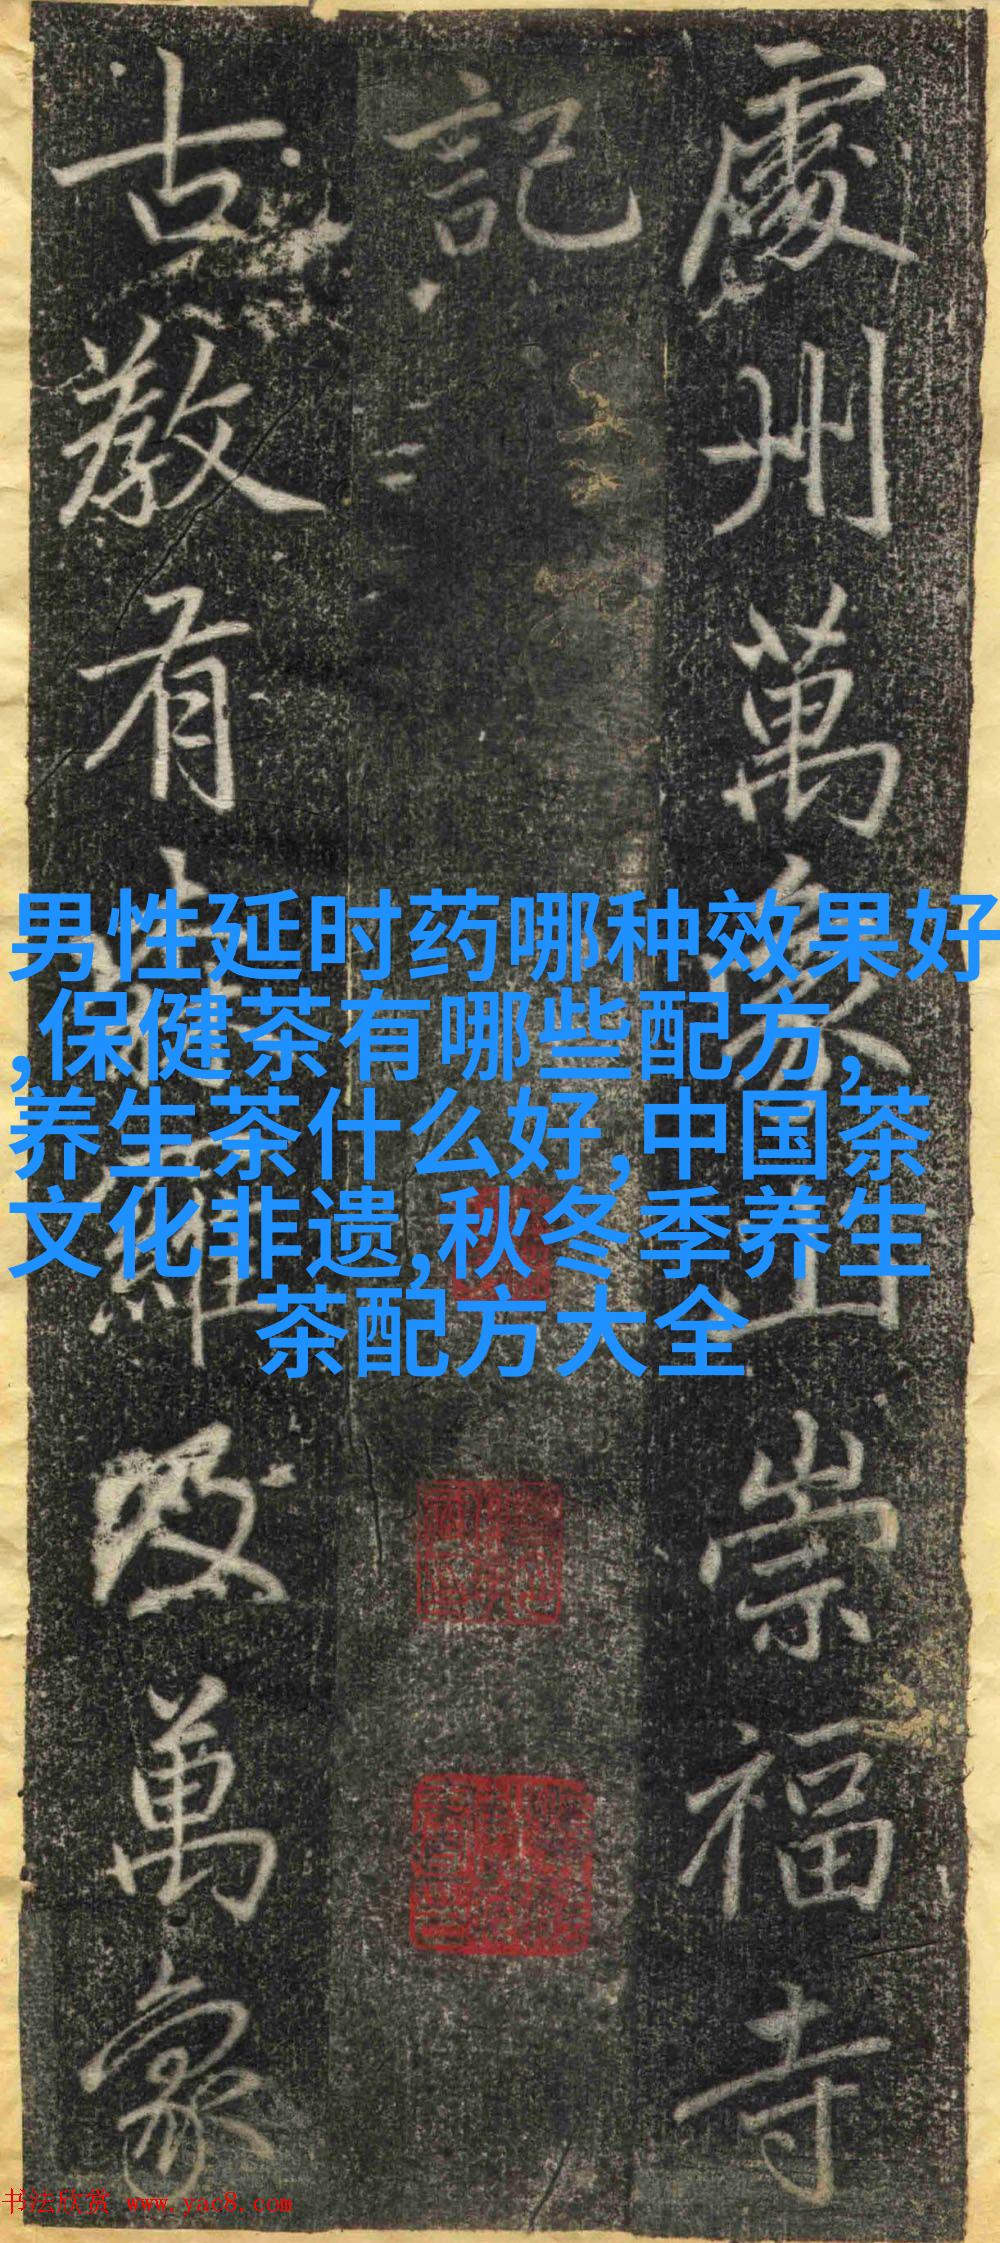 處州萬象山崇福寺
記
古教有羅及萬象
男性延时药哪种效果好
,保健茶有哪些配方,
养生茶什么好,中国茶
文化非遗,秋冬季养生
茶配方大全
书法欣赏 www.yac8.com